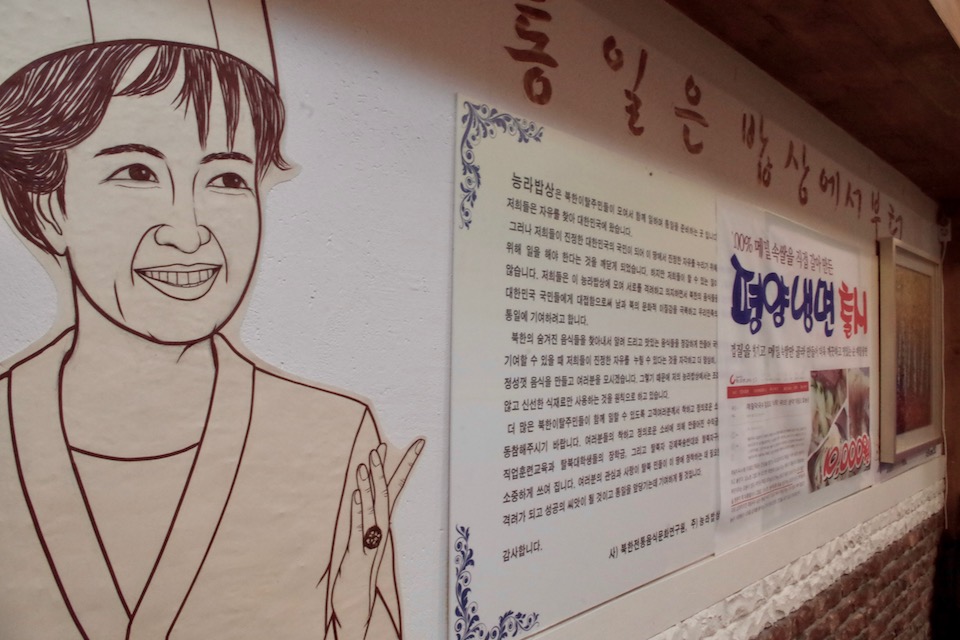 통일은 밥상에서부터
능라밥상은 북한이탈주민들이 모여서 함께 일하며 통일을 준비하는 곳 입니다
저희들은 자유를 찾아 대한민국에 왔습니다.
그러나 저희들이 진정한 대한민국의 국민이 되어 이 땅에서 진정한 자유를 누리기 위해
위해 일을 해야 한다는 것을 깨닫게 되었습니다. 하지만 저희들이 할 수 있는 일이
않습니다. 저희들은 이 능라밥상에 모여 서로를 격려하고 의지하면서 북한의 음식들을
대한민국 국민들에게 대접함으로써 남과 북의 문화적 이질감을 극복하고 우리민족의
통일에 기여하려고 합니다.
북한의 숨겨진 음식들을 찾아내서 알려 드리고 맛있는 음식들을 정성껏 만들어
기여할 수 있을 때 저희들이 진정한 자유를 누릴 수 있다는 것을 자각하고 더 열심히,
정성껏 음식을 만들고 여러분을 모시겠습니다. 그렇기 때문에 저희 능라밥상에서는
않고 신선한 식재료만 사용하는 것을 원칙으로 하고 있습니다.
더 많은 북한이탈주민들이 함께 일할 수 있도록 고객여러분께서 착하고 정의로운 소
동참해주시기 바랍니다. 여러분들의 착하고 정의로운 소비에 의해 만들어진 수익금
직업훈련교육과 탈북대학생들의 장학금, 그리고 탈북자 강제북송반대와 탈북자구
소중하게 쓰여 집니다. 여러분의 관심과 사랑이 탈북 민들이 이 땅에 정착하는 데 필요한
격려가 되고 성공의 씨앗이 될 것이고 통일을 앞당기는데 기여하게 될 것입니다.
감사합니다.
사) 북한전통음식문화연구원, 주) 능라밥상
100% 메밀 속쌀을 직접 갈아 만든
평양냉면 출시
10,000원